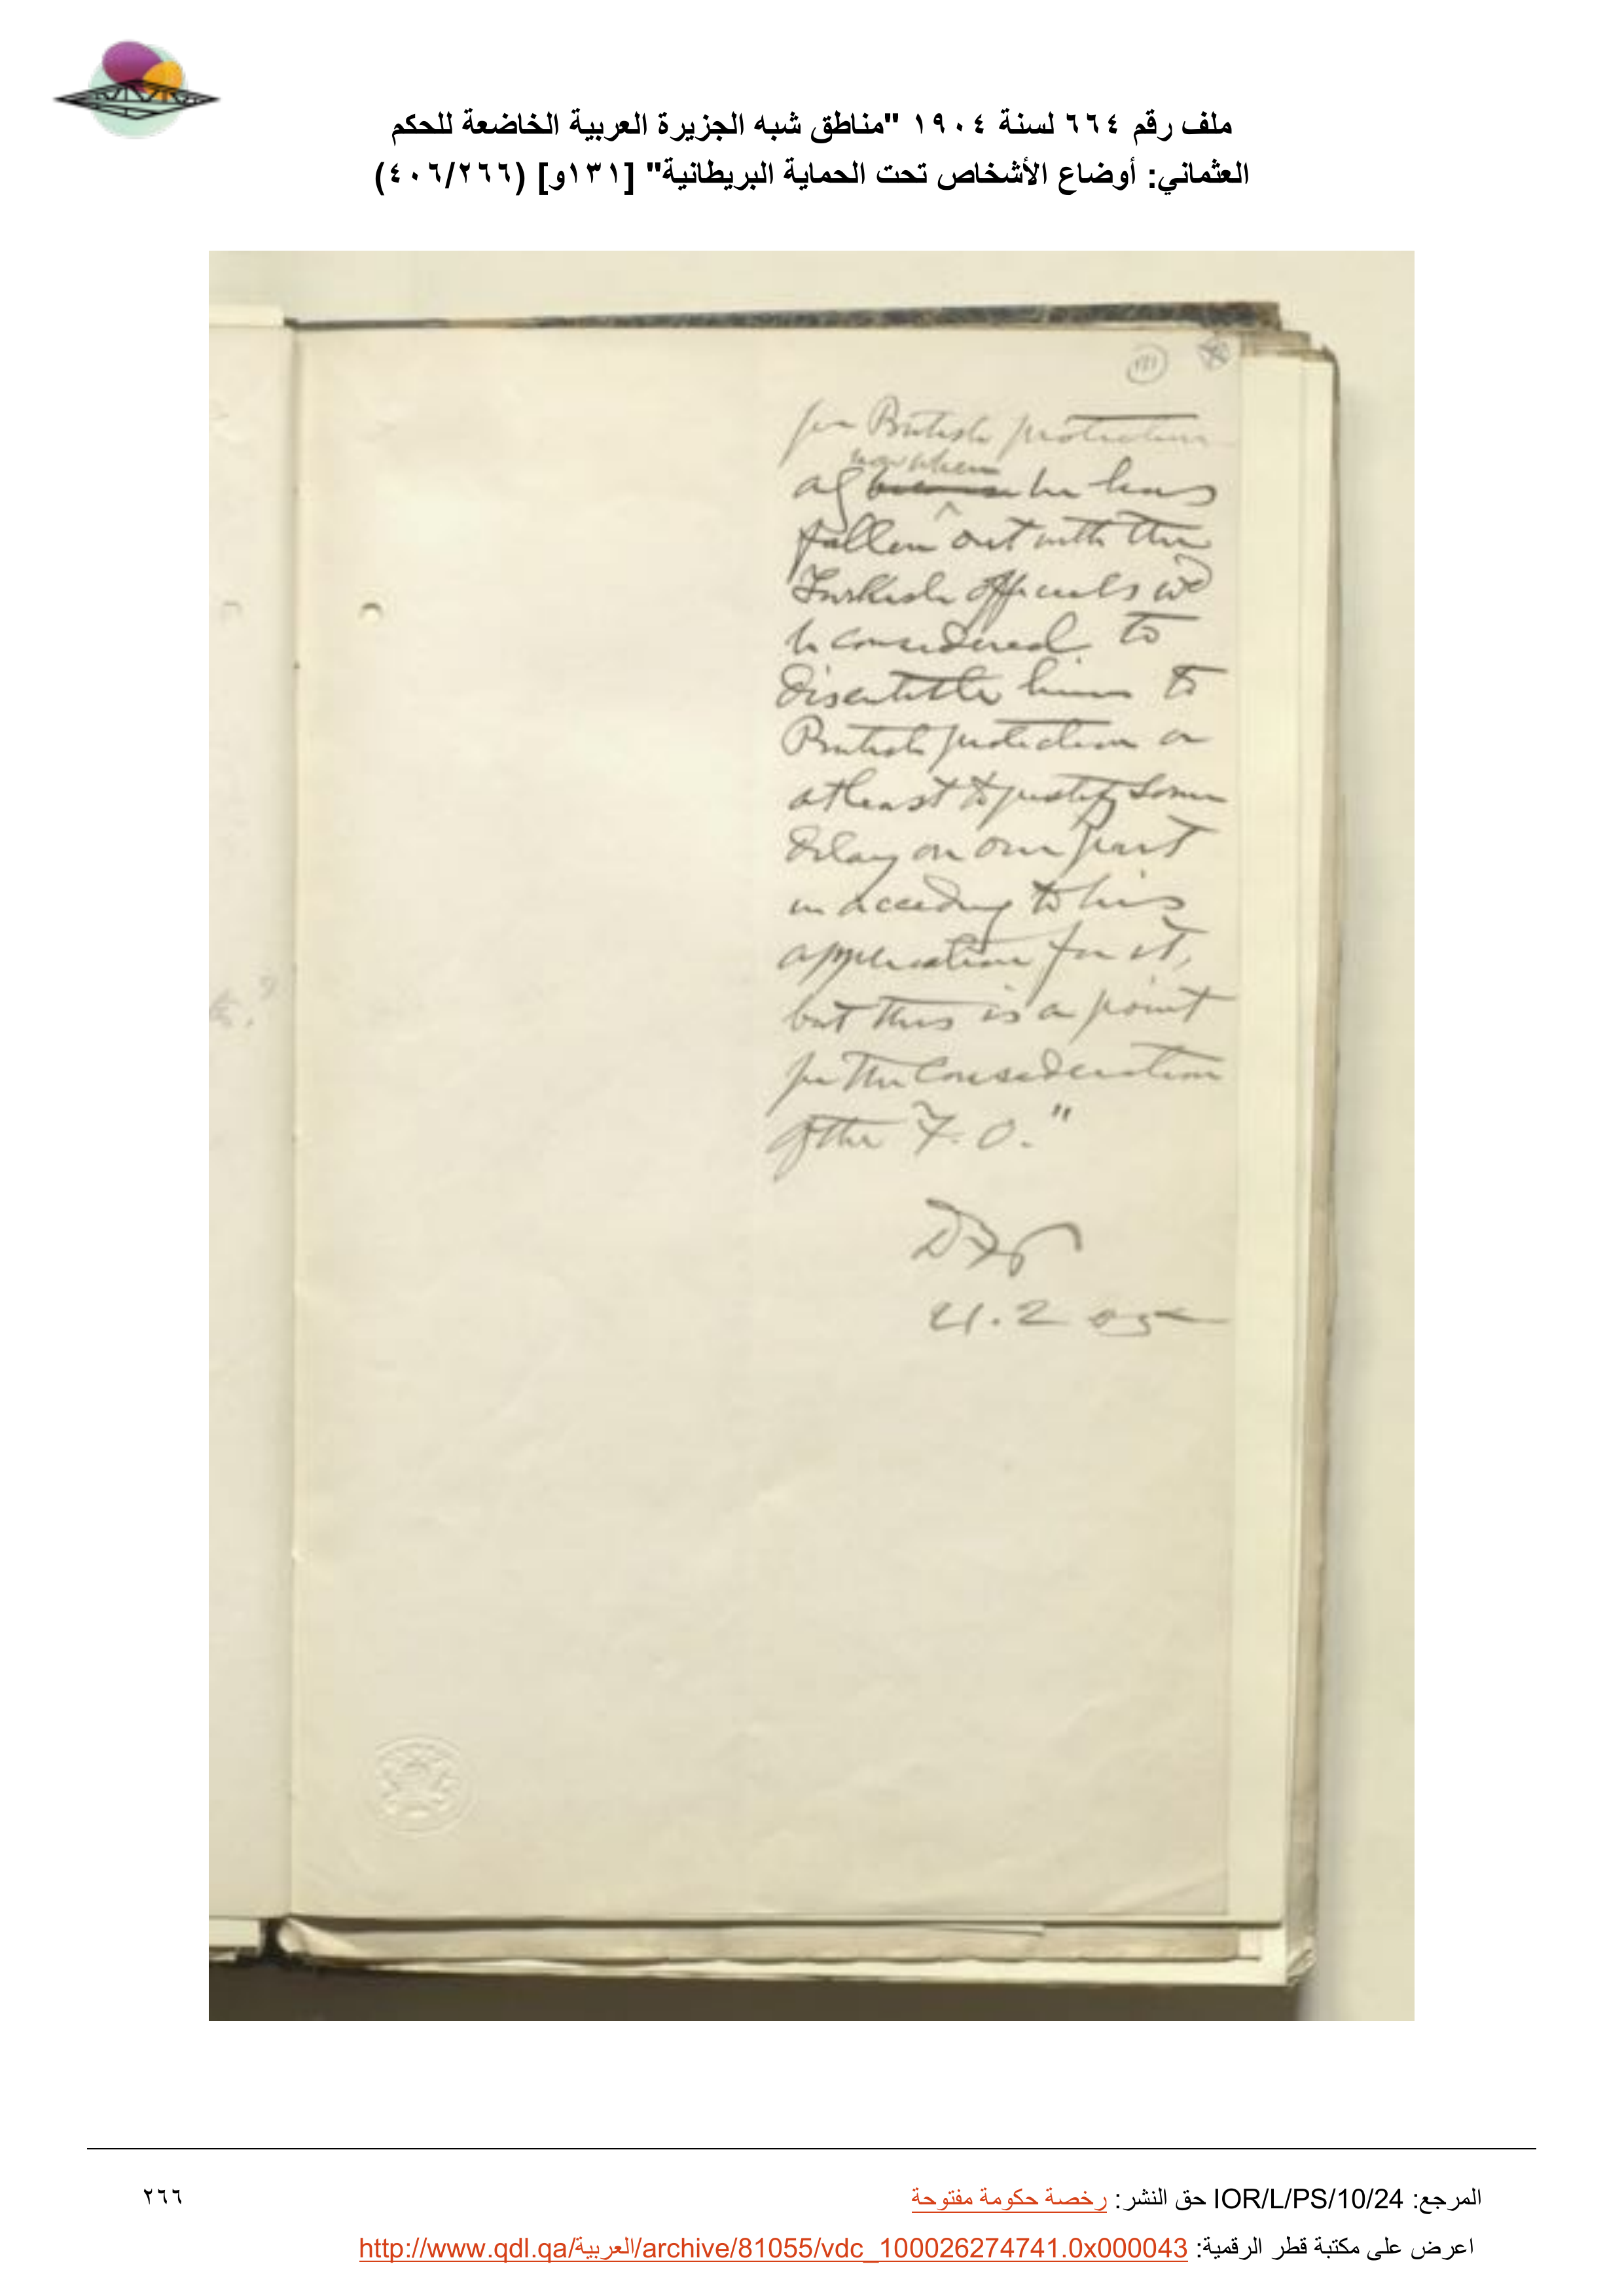 ملف رقم ٦٦٤ لسنة ١٩٠٤ "مناطق شبه الجزيرة العربية الخاضعة للحكم
العثماني: أوضاع الأشخاص تحت الحماية البريطانية" [١٣١و] (٤٠٦/٢٦٦)
for British protection
now when
he has
fallen out with the
Turkish officials wd
be considered to
disentitle him to
British protection or
at least to justify some
delay on our part
in acceding to his
application for it,
but this is a point
for the consideration
of the F. O."
21.2 05
المرجع: IOR/L/PS/10/24 حق النشر: رخصة حكومة مفتوحة
٢٦٦
اعرض على مكتبة قطر الرقمية: http://www.qdl.qa/العربية/archive/81055/vdc_100026274741.0x000043